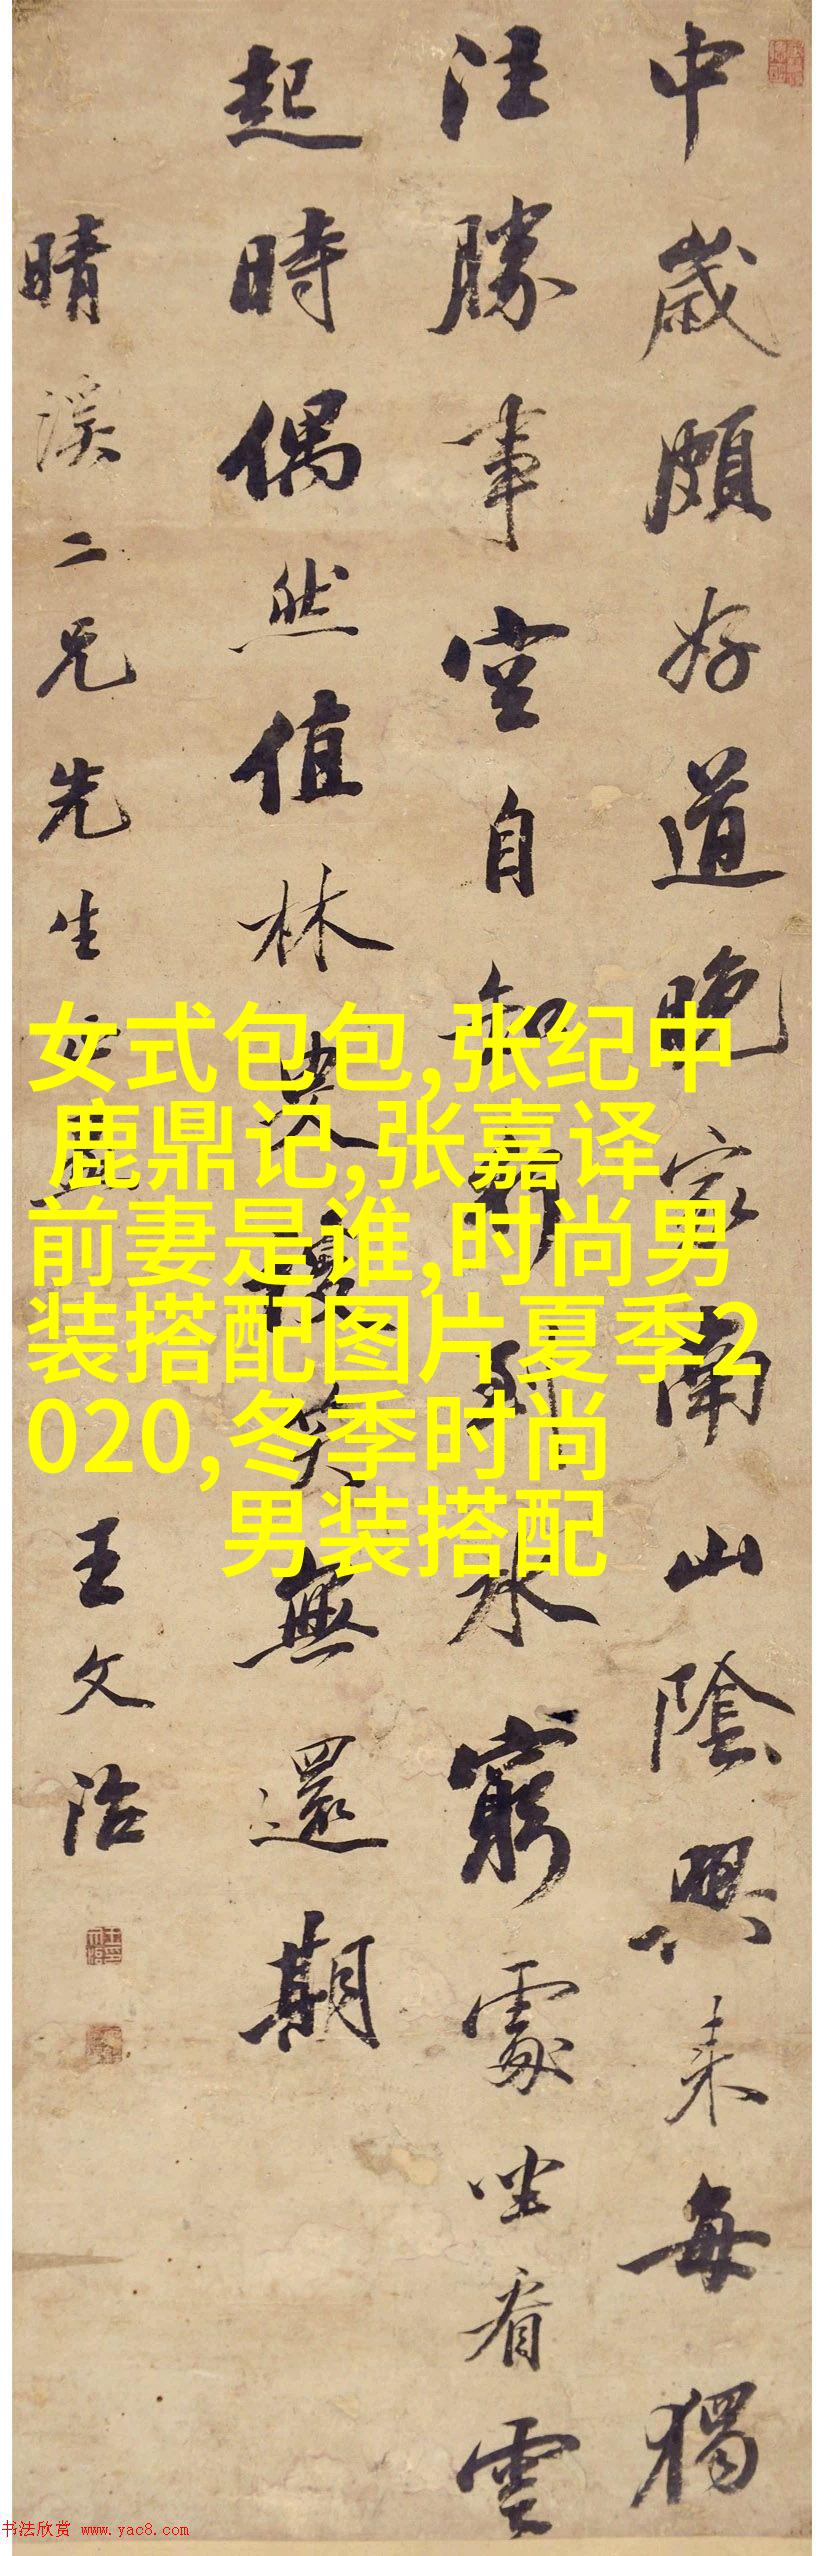 中歲頗好道晚家南山陰興來每獨
往勝事空自知行到水窮處坐看雲
起時偶然值林叟談笑無還期
晴溪二兄先生
王文治
女式包包,张纪中
鹿鼎记,张嘉译
前妻是谁,时尚男
装搭配图片夏季2
020,冬季时尚
男装搭配
书法欣赏 www.yac8.com